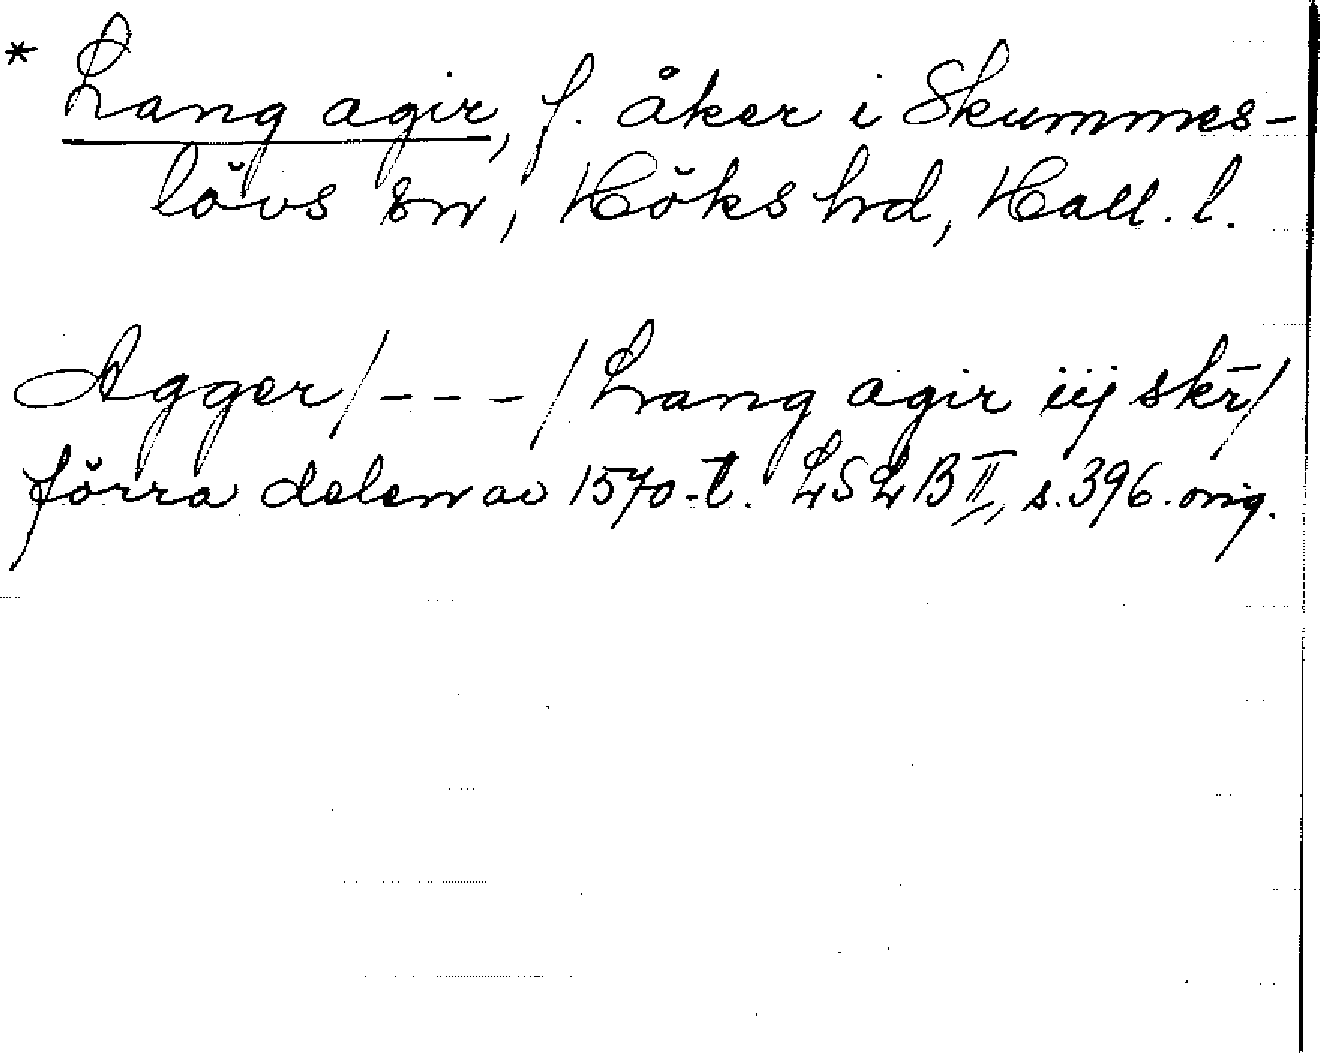 * Lang agir, f. åker i Skummes-
lövs sn, Höks hrd, Hall. l.
Agger/---/Lang agir iij skr̄/
förra delen av 1570-t. LSLB II, s. 396. orig.